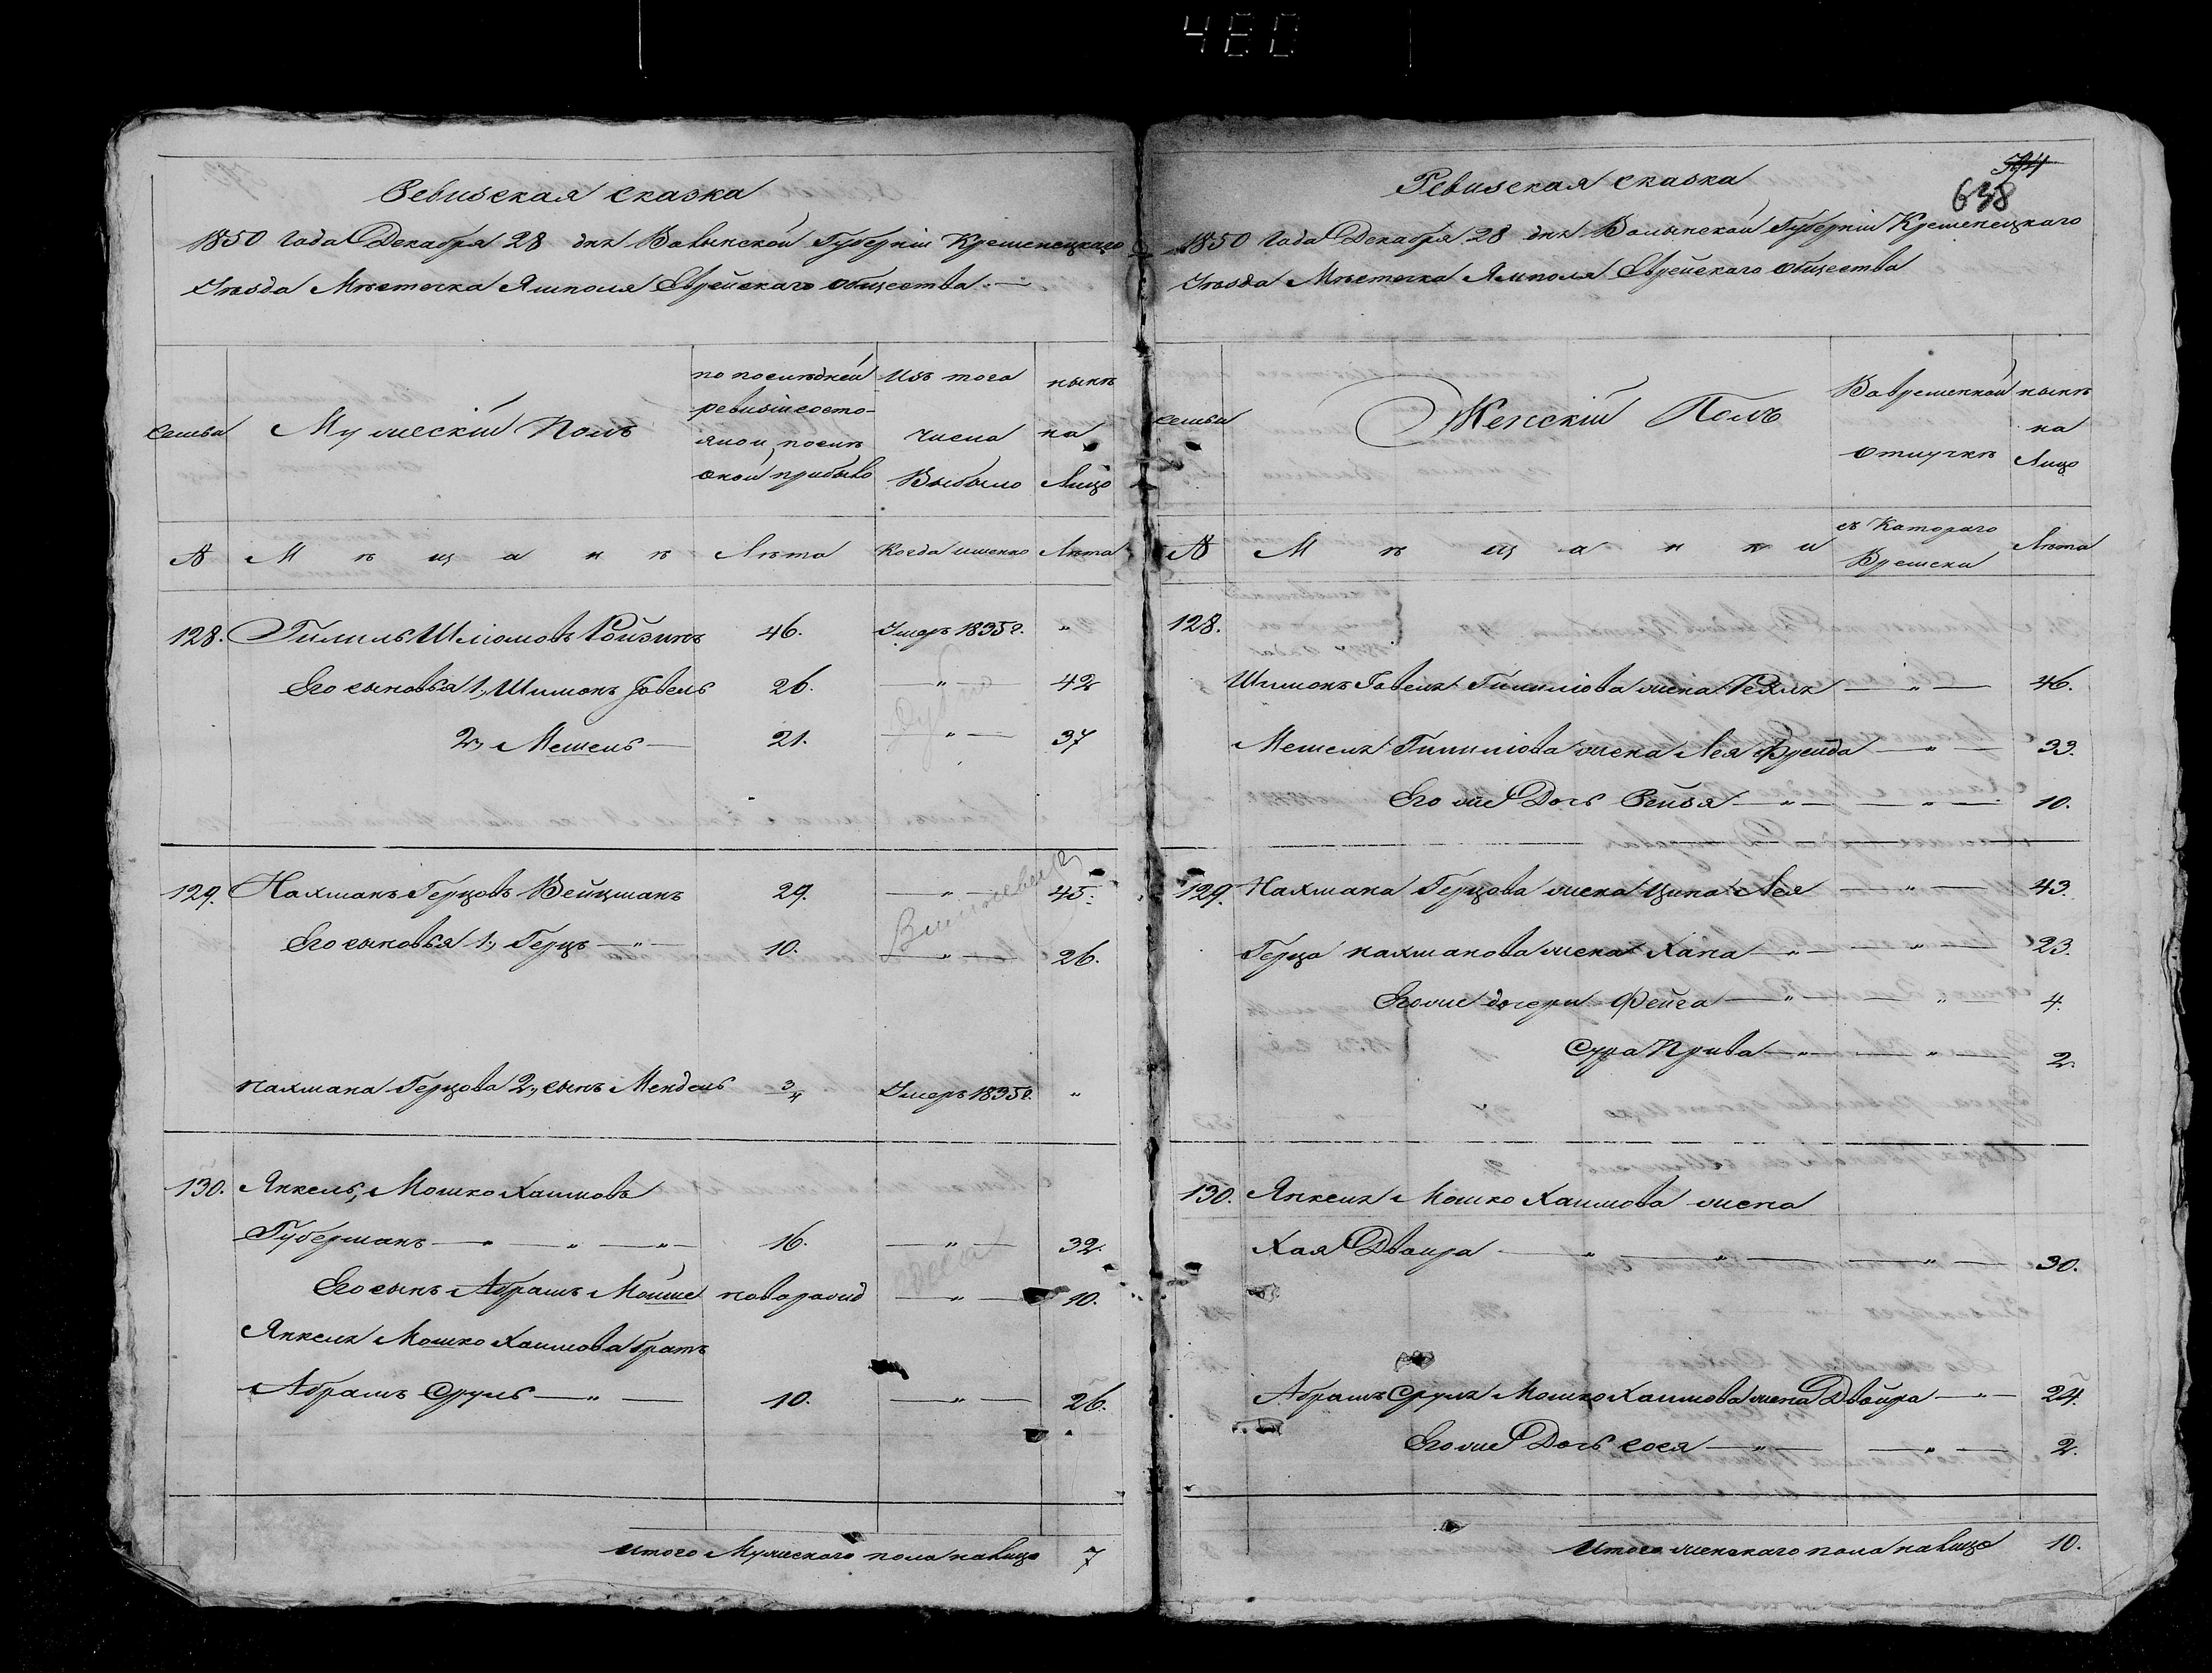 480
Ревизская сказка
1850 Года Декабря 28 дня Волынской Губерніи Кременецкаго
Уезда Мѣстечка Ямполя Еврейскаго Общества
Семьи
Мужескій Полъ
по последней
ревизіи состо-
яло и после
оной прибыло
Изъ того
числа
Выбыло
нынѣ
на
Лицо
№
Мѣщанѣ
Лѣта
Когда именно
Лѣта
128. Гилиль Шліомовъ Ройзинъ 46. Умеръ 1835г. "
Его сыновья 1, Шимонъ Говель 26. — " — 42
2, Мешель — 21. — " — 37
Дубно
129. Нахманъ Герцовъ Вейцманъ 29. — " — 45.
Его сыновья 1, Герцъ — " — 10. — " — 26.
Нахмана Герцова 2, сынъ Мендель 3/4 Умеръ 1835г. "
130. Янкель, Мошко Хаимовъ
Губерманъ — " — " — " — 16. — " — 32.
одесса
Его сынъ Абрамъ Мойше новорожд — " — 10.
Янкеля Мошко Хаимова братъ
Абрамъ Сруль — " — 10. — " — 26.
Итого Мужескаго пола налицо 7
594
638
Ревизская сказка
1850 Года Декабря 28 дня Волынской Губерніи Кременецкаго
Уезда Мѣстечка Ямполя Еврейскаго Общества
Семьи
Женскій Полъ
Вовременной
отлучкѣ
нынѣ
на
Лицо
№
Мѣщанки
съ Котораго
Времени
Лѣта
128.
Шимонъ Говеля Гилиліова жена Рехля — " — 46.
Мешеля Гилиліова жена Лея Фрейда — " — 33.
Его же Дочь Рейзя — " — " — 10.
129. Нахмана Герцова жена Ципа Лея — " — 43.
Герца Нахманова жена Хана — " — " — 23.
Его же дочери Фейга — " — " — 4.
Сура Прива — " — " — 2.
130. Янкеля Мошко Хаимова жена
Хая Двойра — " — " — " — 30.
Абрамъ Сруля Мошко Хаимова жена Двойра — " — 24.
Его же Дочь Сося — " — " — 2.
Итого женскаго пола налицо 10.